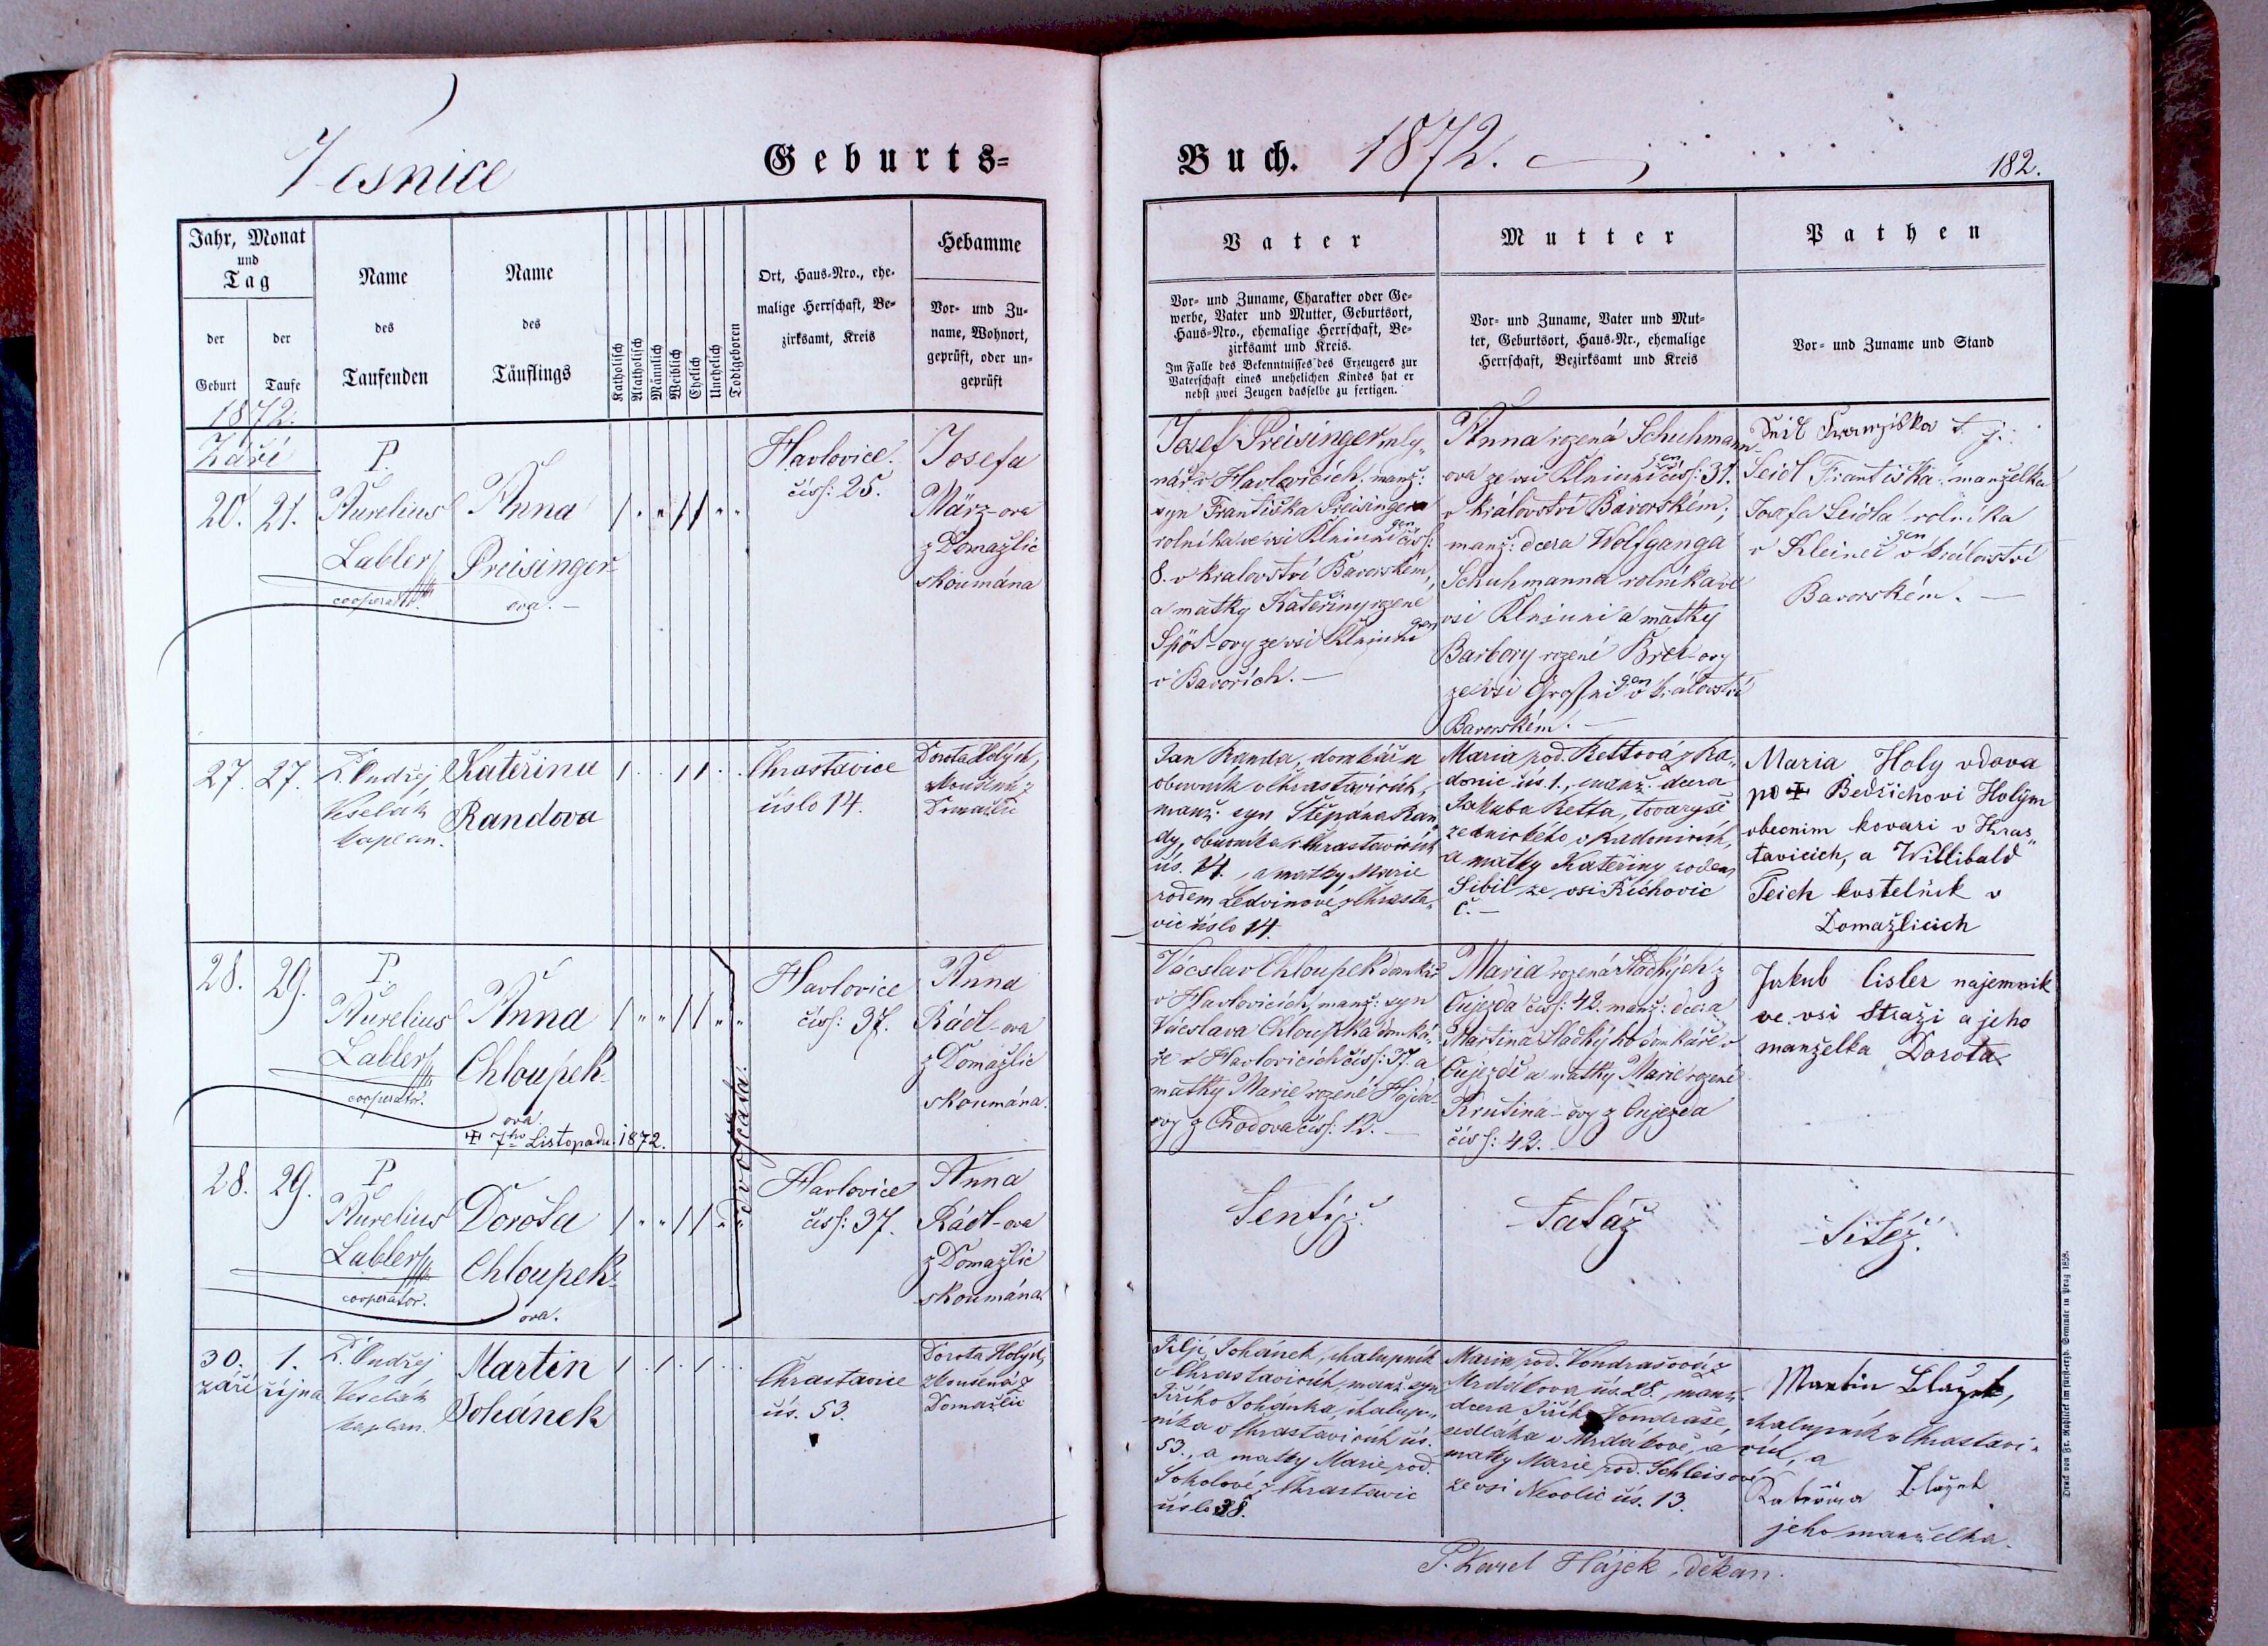 Vesnice
Geburts=
Buch. 1872.
182.
Jahr, Monat
und
Tag
der
Geburt
der
Taufe
Name
des
Taufenden
Name
des
Täuflings
Katholisch
Akatholisch
Männlich
Weiblich
Ehelich
Unehelich
Todtgeboren
Ort, Haus=Nro., ehe=
malige Herrschaft, Be=
zirksamt, Kreis
Hebamme
Vor= und Zu=
name, Wohnort,
geprüft, oder un=
geprüft
Vater
Vor= und Zuname, Charakter oder Ge=
werbe, Vater und Mutter, Geburtsort,
Haus=Nro., ehemalige Herrschaft, Be=
zirksamt und Kreis.
Im Falle des Bekenntnisses des Erzeugers zur
Vaterschaft eines unehelichen Kindes hat er
nebst zwei Zeugen dasselbe zu fertigen.
Mutter
Vor= und Zuname, Vater und Mut=
ter, Geburtsort, Haus=Nr., ehemalige
Herrschaft, Bezirksamt und Kreis
Pathen
Vor= und Zuname und Stand
1872.
Září
20. 21.
P.
Aurelius
Labler
cooperator.
Anna
Preisinger-
ova. —
Havlovice.
čís: 25.
Josefa
März-ova
z Domažlic
skoumána
Josef Preisinger mly„
nář v Havlovicích, manž:
syn Františka Preisingera
rolníka ve vsi čís:
8. v kralovství Bavorskem,
a matky Kateřiny rozené
Spöt-ovy ze vsi
v Bavořích. —
Anna rozená Schuhmann-
ova ze vsi čís: 31.
v království Bavorském;
manž: dcera Wolfganga
Schuhmanna rolníka ve
vsi a matky
Barbory rozené
ze vsi v království
Bavorském. —
Franziska
Seidl Františka manželka
Josefa Seidla rolníka
v království
Bavorském. —
27. 27.
P. Ondřej
Veselák
kaplan.
Kateřina
Randova
Chrastavice
číslo 14.
Dorota Holých,
zkoušená z
Domažlic
Jan Randa, domkář a
obuvník v Chrastavicích,
manž. syn Štěpána Ran„
dy, obuvníka v Chrastavicích
čís. 14., a matky Marie
rodem Ledvinové z Chrasta„
vic číslo 14.
Maria rod. Bettová z Ra„
donic čís. 1., manž. dcera
Jakuba Betta, tovaryše
zednického v Radonicích,
a matky Kateřiny rodem
Sibil ze vsi Říchovic
č. —
Maria Holy vdova
po ✝ Bedřichovi Holým
obecnim kovari v Hras„
tavicich, a Willibald
Teich kostelník v
Domažlicich
28. 29.
P.
Aurelius
Labler
cooperator.
Anna
Chloupek-
ova.
✝ 7ho Listopadu 1872.
dvojčata.
Havlovice
čís: 37.
Anna
Rádl-ova
z Domažlic
skoumána.
Vácslav Chloupek domkář
v Havlovicích, manž: syn
Vácslava Chloupka domká-
ře v Havlovicích čís: 37. a
matky Marie rozené Hojda-
ovy z Chodova čís: 12. —
Maria rozená Sladkých z
Oujezda čís: 42. manž: dcera
Martina Sladkýho domkáře v
Oujezdě a matky Marie rozené
Krutina-ovy z Oujezda
čís: 42.
Jakub Cisler najemnik
ve vsi Straži a jeho
manželka Dorota
28. 29.
P.
Aurelius
Labler
cooperator.
Dorota
Chloupek-
ova.
Havlovice
čís: 37.
Anna
Rádl-ova
z Domažlic
skoumána
Tentýž.
Tatáž
Titéž.
30. 1.
září října
P. Ondřej
Veselák
kaplan.
Martin
Johánek
Chrastavice
čís. 53.
Dorota Holých,
zkoušená z
Domažlic
Filip Johánek, chalupník
v Chrastavicích, manž. syn
Jiřího Johánka, chalup„
níka v Chrastavicích čís.
53., a matky Marie, rod.
Sokolové z Chrastavic
číslo 38.
Maria rod. Vondrašová z
Mrdákova čís. 28., manž.
dcera Jiřího Vondraše,
sedláka v Mrdákově, a
matky Marie, rod. Schleisové
ze vsi Nevolic čís. 13.
Martin Blažek,
chalupník v Chrastavi-
cích, a
Kateřina Blažek
jeho manželka.
P. Karel Hájek, děkan.
Druck von Fr. Rohliček im fürst-erzb. Seminar in Prag 1859.